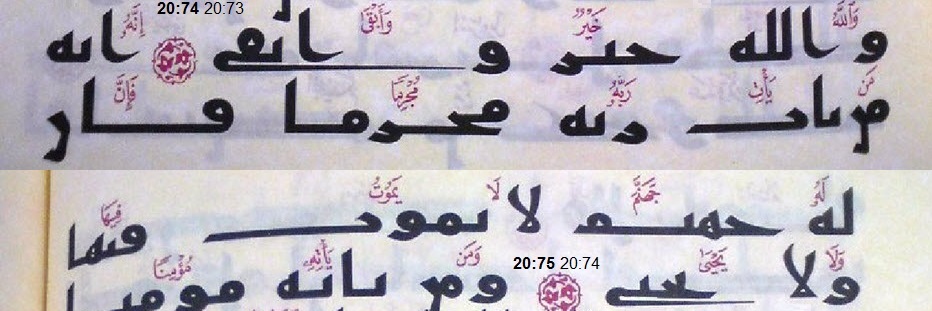 20:74 20:73
وَٱللَّهُ خَيْرٌ وَأَبْقَىٰ إِنَّهُۥ
و الله خير و ابقى انه
مَن يَأْتِ رَبَّهُۥ مُجْرِمًا فَإِنَّ
من يات ربه مجرما فان
لَهُۥ جَهَنَّمَ لَا يَمُوتُ فِيهَا
له جهنم لا يموت فيها
20:75 20:74
وَلَا يَحْيَىٰ وَمَن يَأْتِهِۦ مُؤْمِنًا
ولا يحيى ومن ياته مومنا